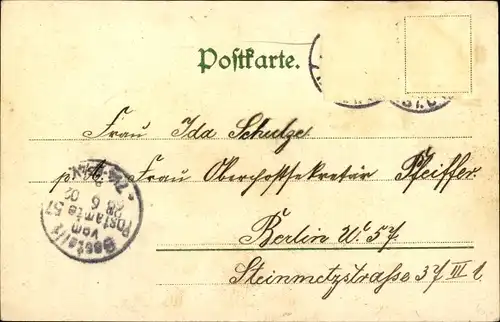 Postkarte.
Frau Ida Schulze
p. A. Frau Oberpostsekretär Pfeiffer.
Berlin W. 57.
Steinmetzstrasse 37 III l
Bestellt
vom
Postamte 57
28 6 02